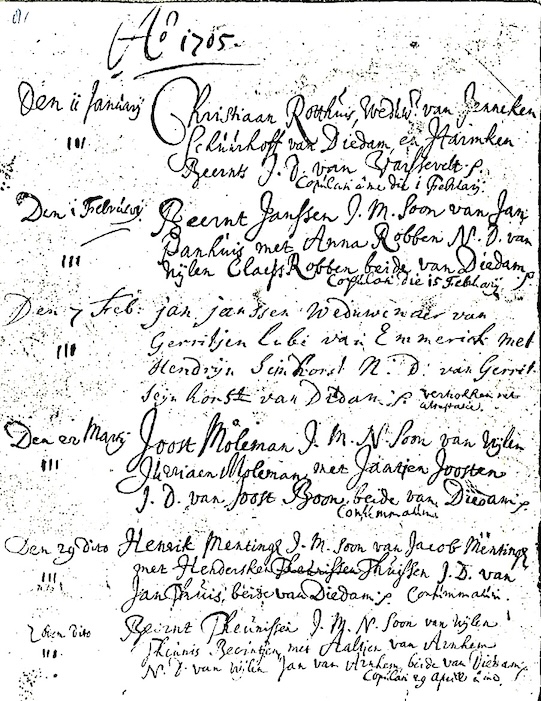 Aº 1705.
Den 11 Januarij Christiaan Rotthuis, Wedw: van Jenneken
Schuurhoff van Diedam, en Harmken
Beernts J. D. van Varssevelt.
Copulati die 1 Febrarij.
Den 1 Februarij Beernt Janssen J. M. Soon van Jan
Banhuis met Anna Robben N. D. van
wijlen Claess Robben beide van Diedam
Copulati die 15 Febrarij
Den 7 Feb: jan janssen weduwenaer van
Gerritjen Lubi van Emmerick met
Hendrijn Seinhorst N. D: van Gerrit
Seijnhorst van Didam
vertrokken met
attestatie.
Den 22 Martij Joost Moleman J. M. N. Soon van wijlen
Jurriaen Moleman met Jantjen Joosten
J. D. van Joost Boon beide van Diedam
Consummatum
Den 29 dito Henrik Mentingh J. M. Soon van Jacob Mentingh
met Hendersken Thuissen J. D. van
Jan Thuis, beide van Diedam Consummatum.
dito Beernt Theunissen J. M. N. Soon van wijlen
Theunis met Aaltjen van Arnhem
N. D. van wijlen Jan van Arnhem, beide van Diedam
Copulati 29 Aprill